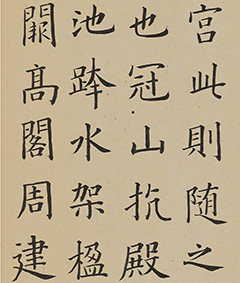 宮此則随之
也冠山抗殿
池跨水架楹
闕髙閣周建